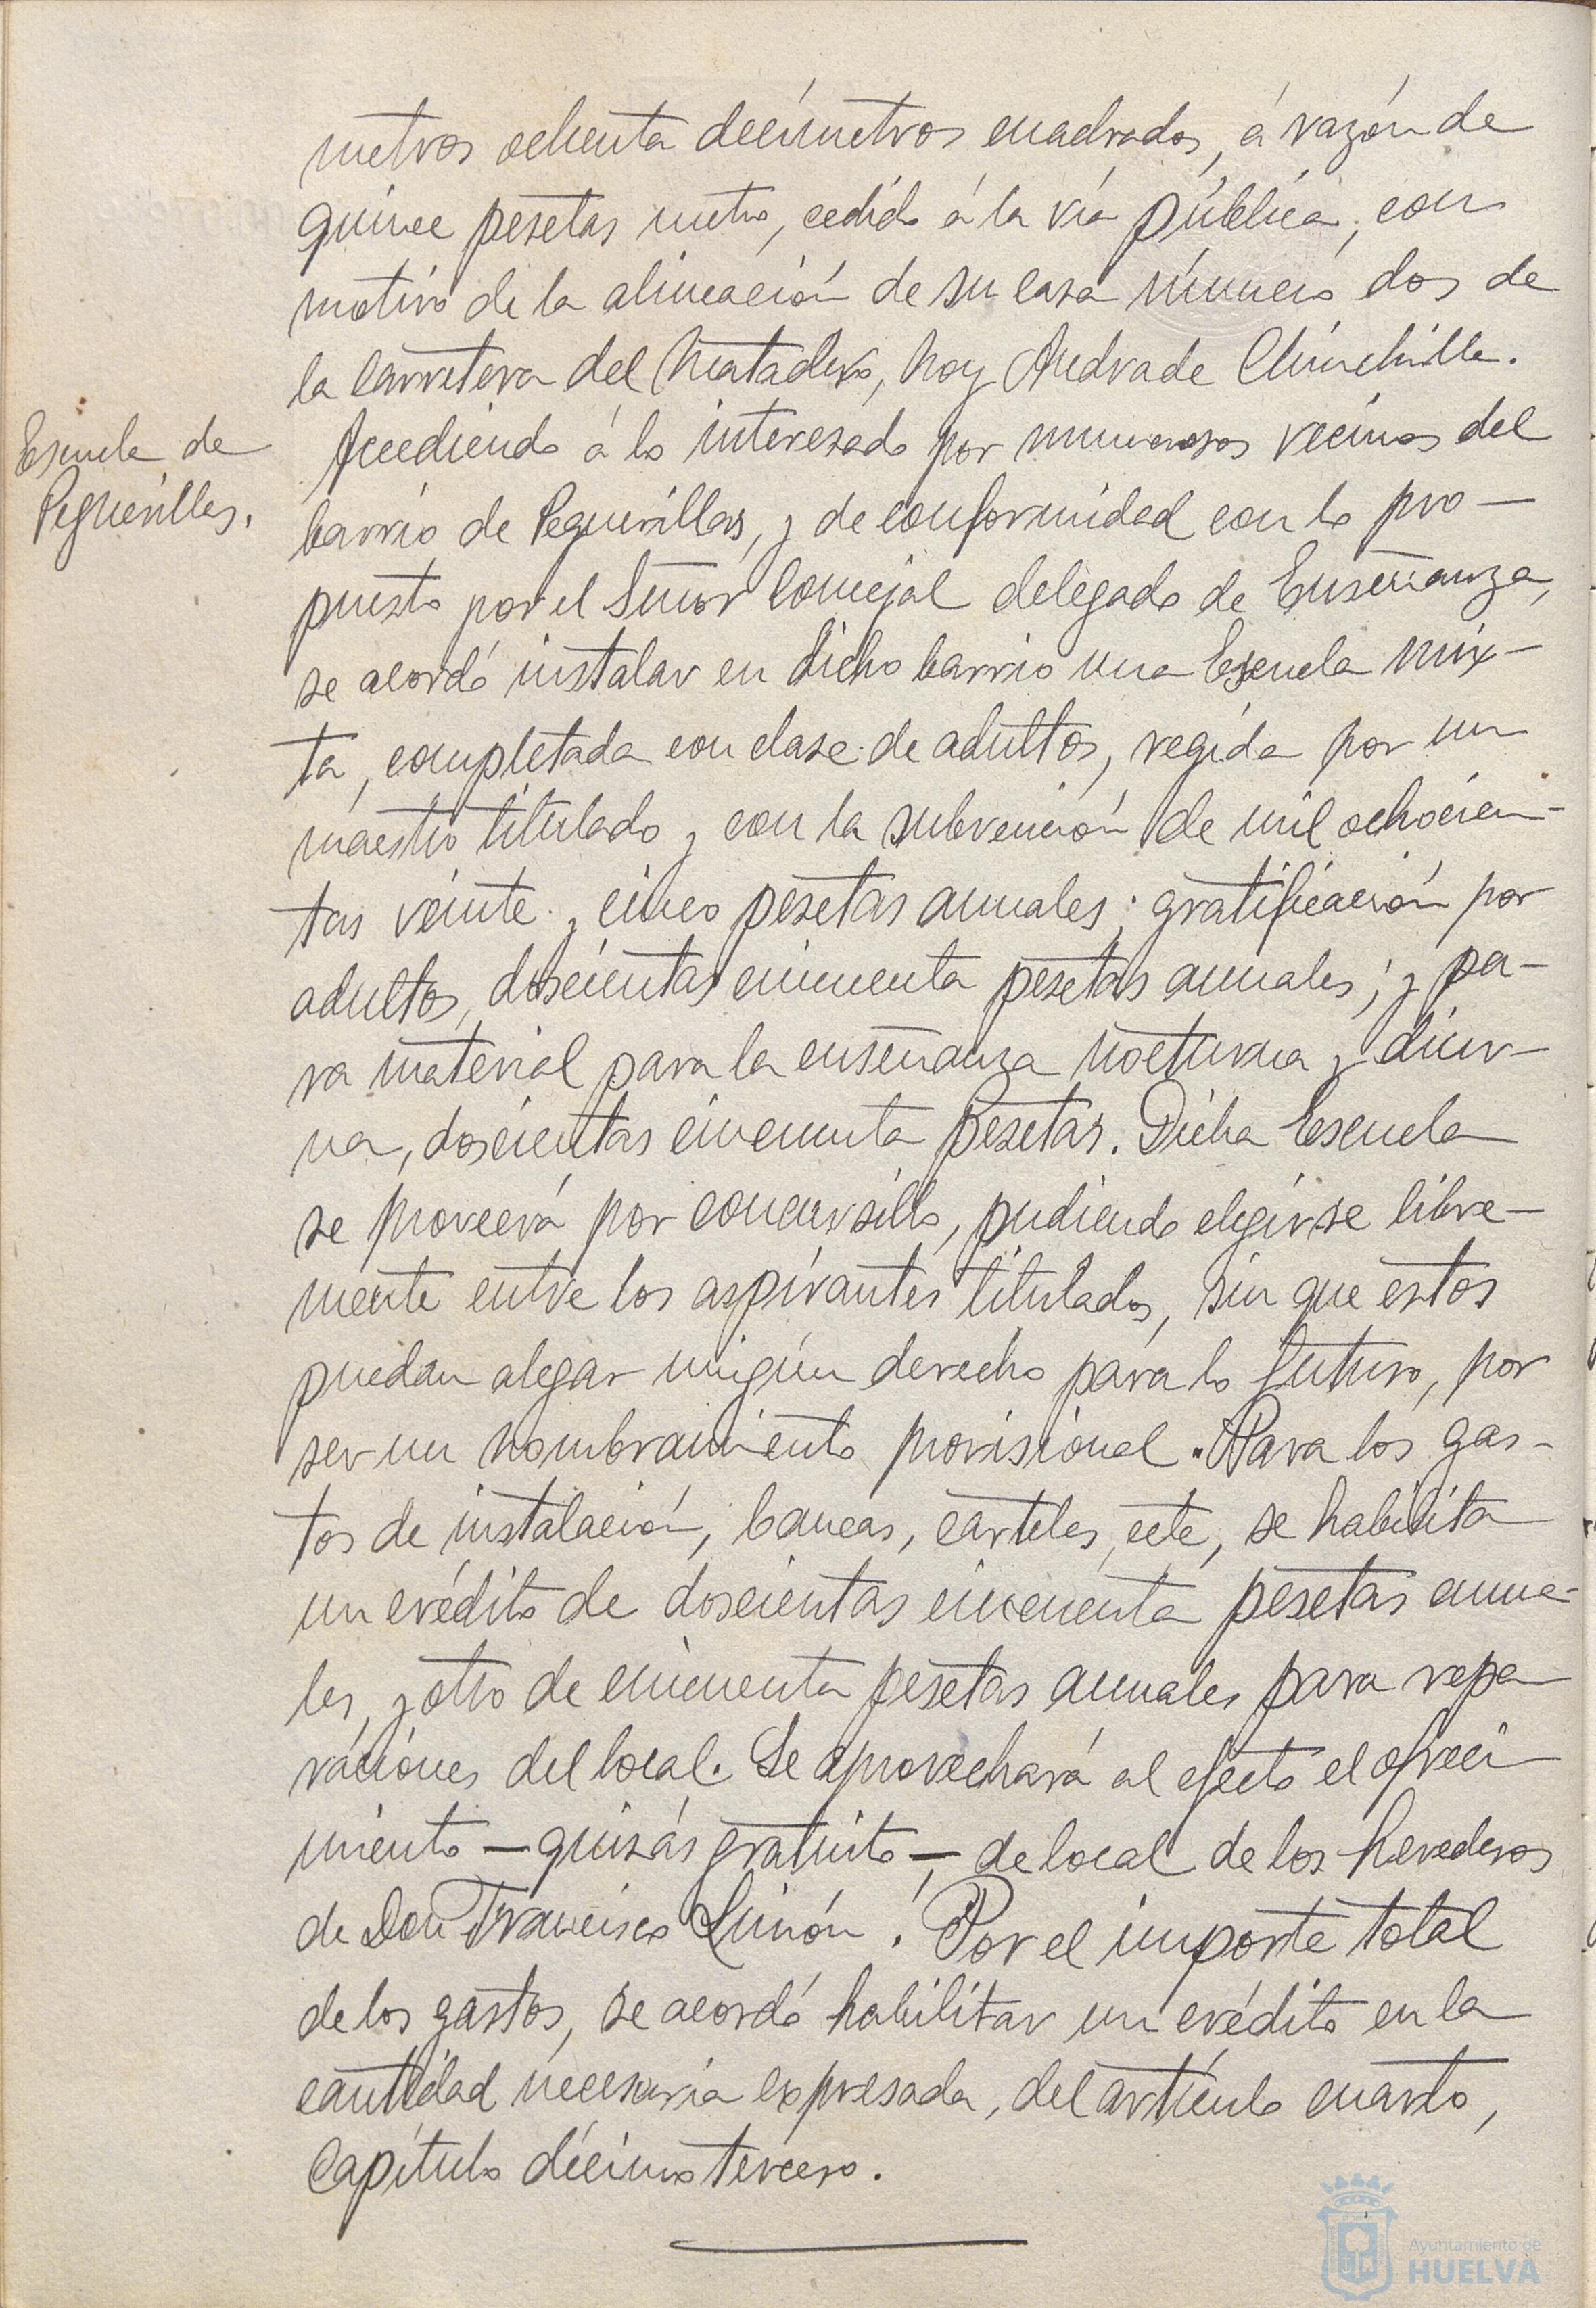 metros ochenta decímetros cuadrados, á razón de
quince pesetas metro, cedido á la vía pública, con
motivo de la alineación de su casa número dos de
la carretera del Matadero, hoy Andrade Chinchilla.
Escuela de
Peguerillas.
Accediendo á lo interesado por numerosos vecinos del
barrio de Peguerillas, y de conformidad con lo pro—
puesto por el Señor Concejal delegado de Enseñanza,
se acordó instalar en dicho barrio una Escuela mix—
ta, completada con clase de adultos, regida por un
maestro titulado y con la subvención de mil ochocien—
tas veinte y cinco pesetas anuales; gratificación por
adultos, doscientas cincuenta pesetas anuales; y pa—
ra material para la enseñanza nocturna y diur—
na, doscientas cincuenta pesetas. Dicha Escuela
se proveerá por concursillo, pudiendo elegirse libre—
mente entre los aspirantes titulados, sin que estos
puedan alegar ningún derecho para lo futuro, por
ser un nombramiento provisional. Para los gas—
tos de instalación, bancas, carteles, ect, se habilita
un crédito de doscientas cincuenta pesetas anua—
les, y otro de cincuenta pesetas anuales para repa—
raciones del local. Se aprovechará al efecto el ofreci—
miento — quizás gratuito —, de local de los herederos
de Don Francisco Limón. Por el importe total
de los gastos, se acordó habilitar un crédito en la
cantidad necesaria expresada, del artículo cuarto,
Capítulo décimo tercero.
Ayuntamiento de
HUELVA